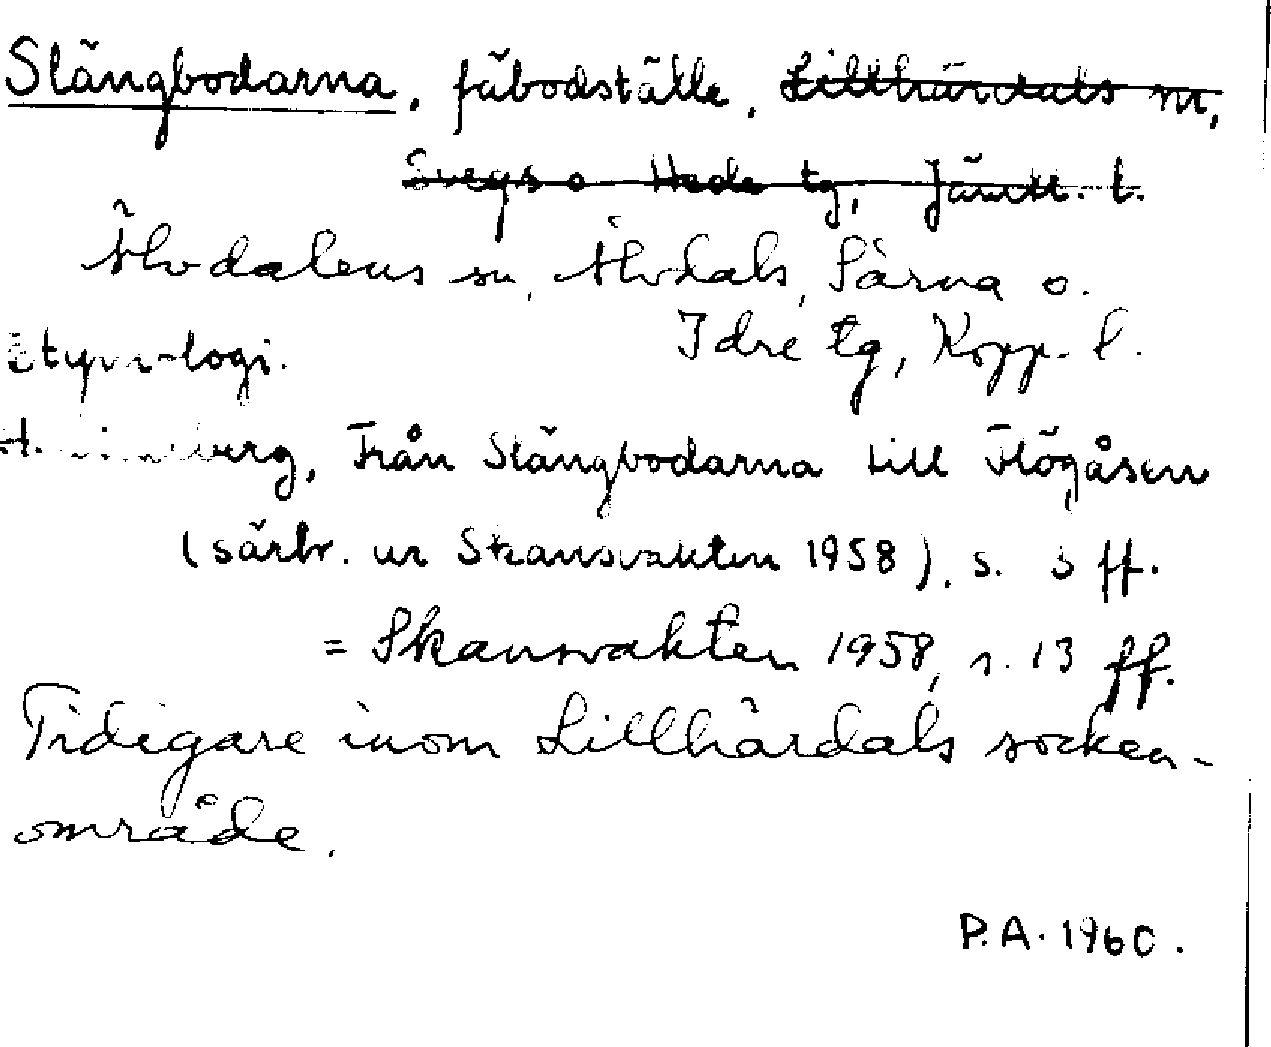 Slängbodarna, fäbodställe, Lillhärdals sn,
Svegs o Hede tg, Jämtl. l.
Älvdalens sn, Älvdals, Särna o.
Idre tg, Kopp. l.
Etymologi.
Från Slängbodarna till Flögåsen
(särtr. ur Skansvakten 1958), s. 3 ff.
= Skansvakten 1958, s. 13 ff.
Tidigare inom Lillhärdals socken-
område.
P.A. 1960.